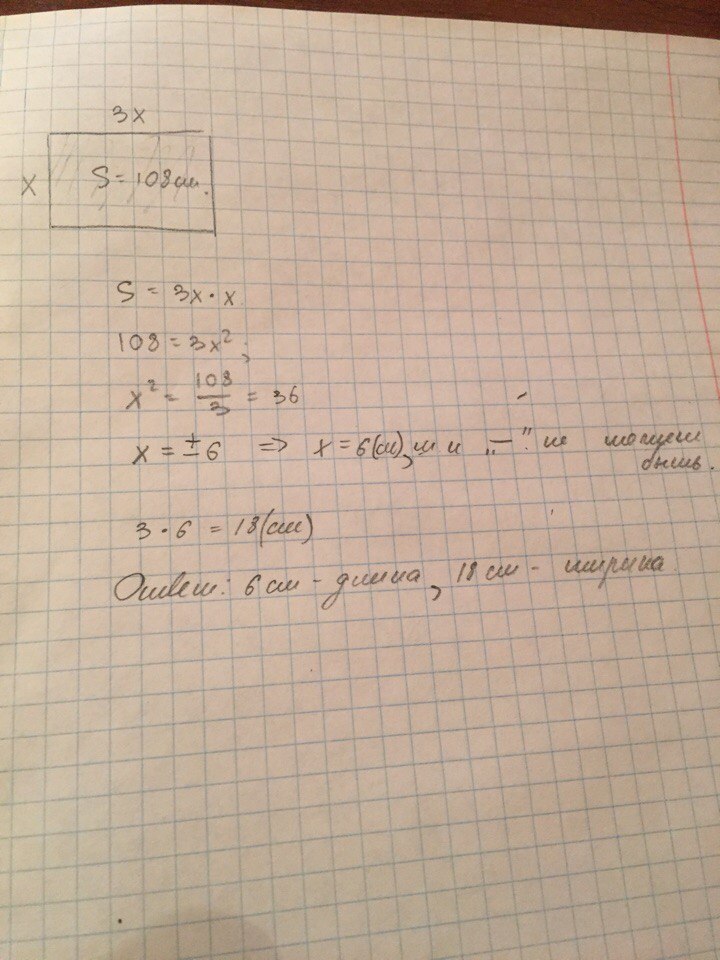 3x
x
S = 108 см.
S = 3x · x
108 = 3x²;
x² = 108/3 = 36
x = ±6 => x = 6(см), „—" не может
быть.
3 · 6 = 18(см)
Ответ: 6 см - длина, 18 см - ширина